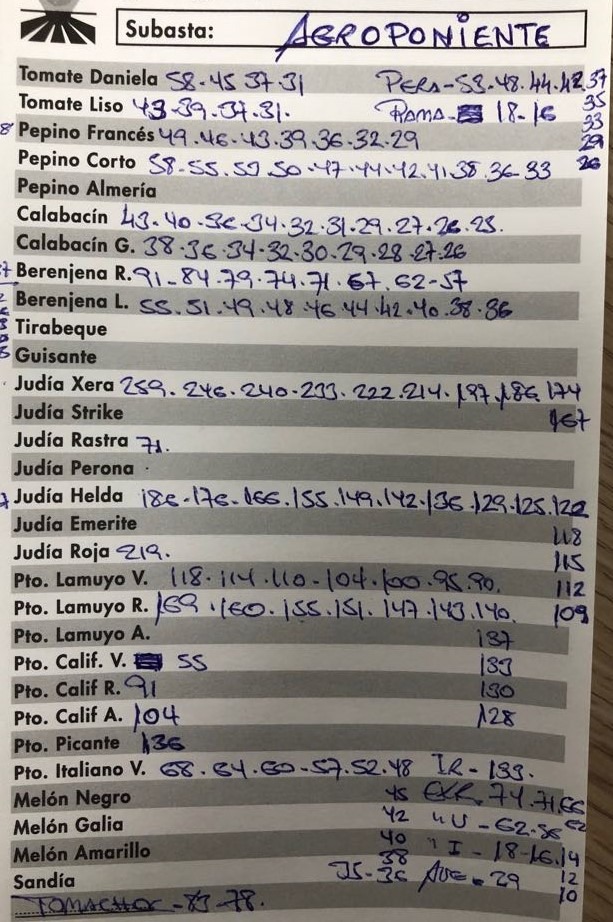 Subasta: AGROPONIENTE
Tomate Daniela 58-45 37-31 PERA-53.48.44.42.37
Tomate Liso 43-39.37.31. RAMA- 18-16 35
33
Pepino Francés 49.46.43.39.36.32.29 29
Pepino Corto 58.55.53.50.47.44.42.41.38.36-33 26
Pepino Almería
Calabacín 43.40.36-34.32.31.29.27.26.23.
Calabacín G. 38.36.34.32.30.29.28-27.26
Berenjena R. 91-84.79.74.71.67.62-57
Berenjena L. 55.51.49.48.46.44.42.40.38.36
Tirabeque
Guisante
Judía Xera 259.246.240-233.222.214.197.186.174
Judía Strike 167
Judía Rastra 71.
Judía Perona
Judía Helda 186-176.166.155.149.142.136.129.125.122
Judía Emerite 118
Judía Roja 219. 115
Pto. Lamuyo V. 118.114.110-104.100.95.90. 112
Pto. Lamuyo R. 169.160.155.151.147.143.140. 109
Pto. Lamuyo A. 137
Pto. Calif. V. 55 133
Pto. Calif R. 91 130
Pto. Calif A. 104 128
Pto. Picante 136
Pto. Italiano V. 68.64.60-57.52.48 IR-133.
Melón Negro 45 EXR. 74.71.66
Melón Galia 42 "U-62-56 62
Melón Amarillo 40 "I-18-16.14
38 12
Sandía JS-36 AVE-29 10
TOMACHOC-83-78.